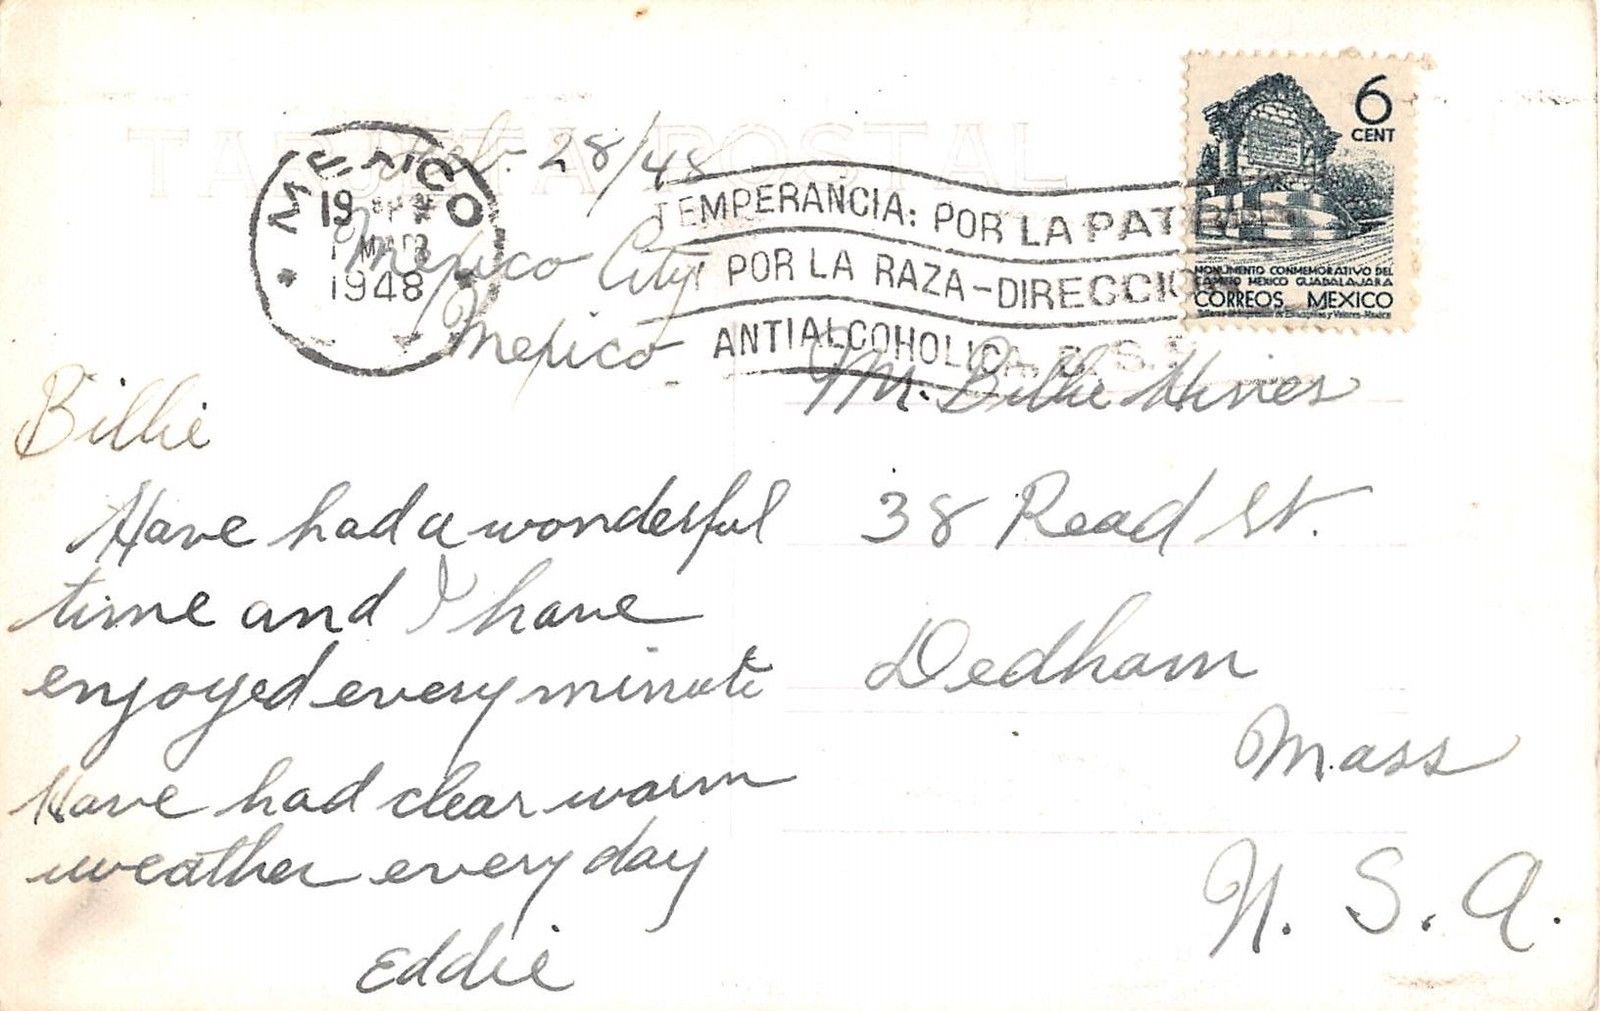 TARJETA POSTAL
Feb. 28/48
Mexico City
Mexico
MEXICO
19
1 MAR
1948
TEMPERANCIA: POR LA PATRIA
Y POR LA RAZA-DIRECCION
ANTIALCOHOLICA. S.S.
6
CENT
MONUMENTO CONMEMORATIVO DEL
CAMINO MEXICO GUADALAJARA
CORREOS MEXICO
Talleres de Impresión de Estampillas y Valores-Mexico
Billie
Have had a wonderful
time and I have
enjoyed every minute
Have had clear warm
weather every day
Eddie
M. Billie Hines
38 Read St.
Dedham
Mass
U. S. A.